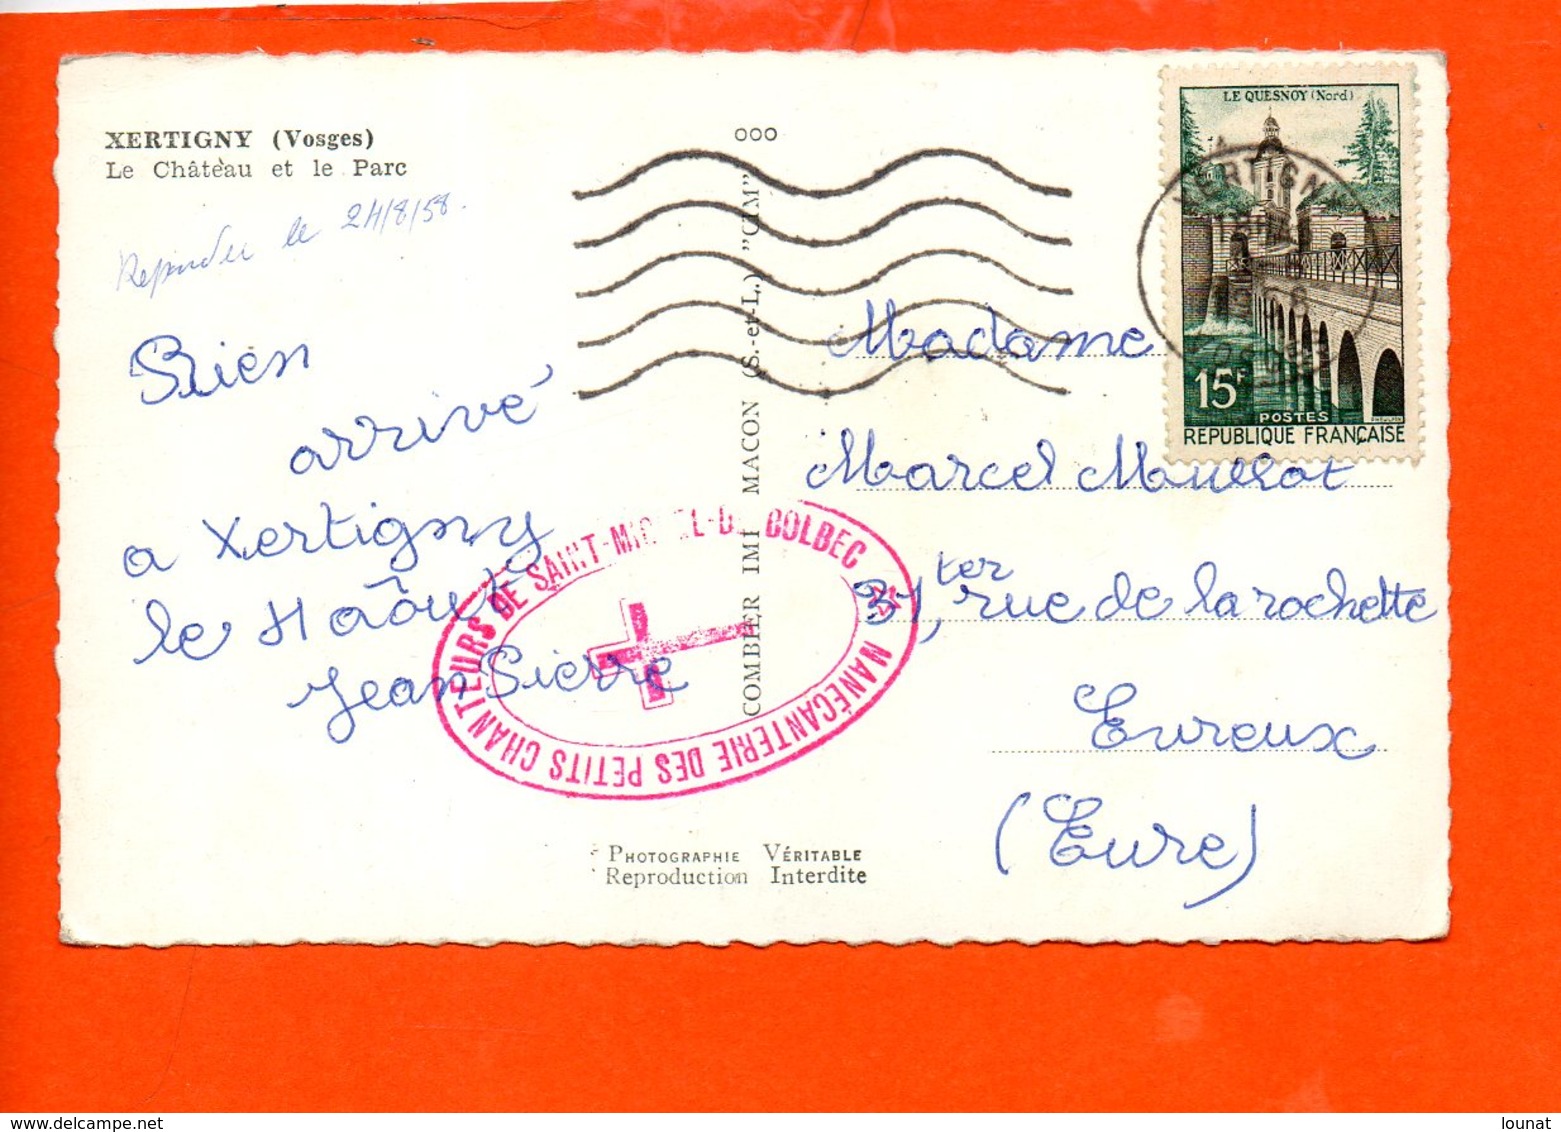 XERTIGNY (Vosges)
Le Château et le Parc
Repondu le 24/8/58.
Bien
arrivé
a Xertigny
le 11 Aôut
Jean Pierre
ooo
COMBIER IMP MACON (S.-et-L.) "CIM"
MANÉCANTERIE DES PETITS CHANTEURS DE SAINT-MICHEL-DE BOLBEC
LE QUESNOY (Nord)
15F
POSTES
REPUBLIQUE FRANÇAISE
XERTIGNY
VOSGES
Madame
Marcel Mullot
31, ter rue de la rochette
Evreux
(Eure)
PHOTOGRAPHIE VÉRITABLE
Reproduction Interdite
lounat